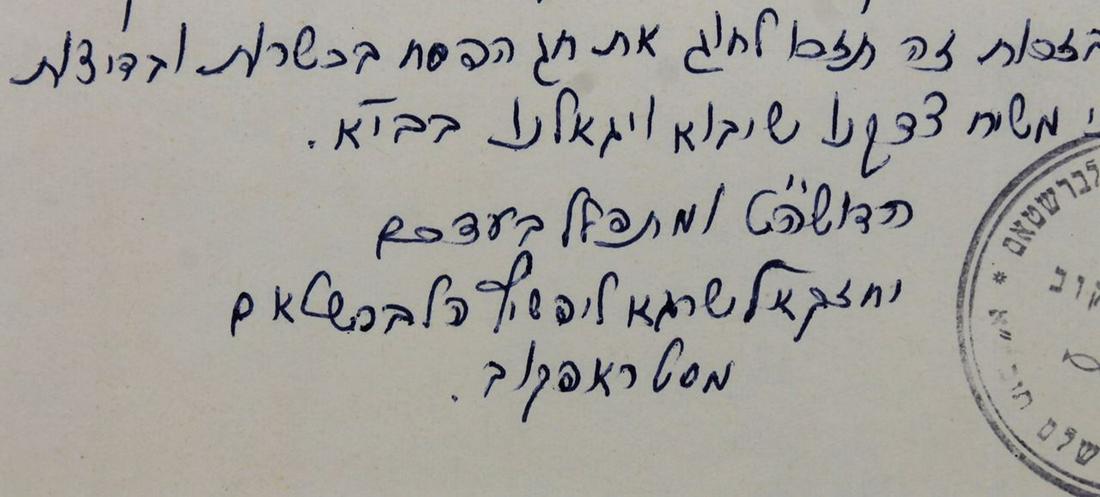 בזכות זה תזכו לחוג את חג הפסח בכשרות ובדיצות
משיח צדקנו שיבוא ויגאלנו בב"א.
הדושה"ט ומתפלל בעדכם
יחזקאל שרגא ליפשיץ הלברשטאם
מסטראפקוב.
לברשטאם *